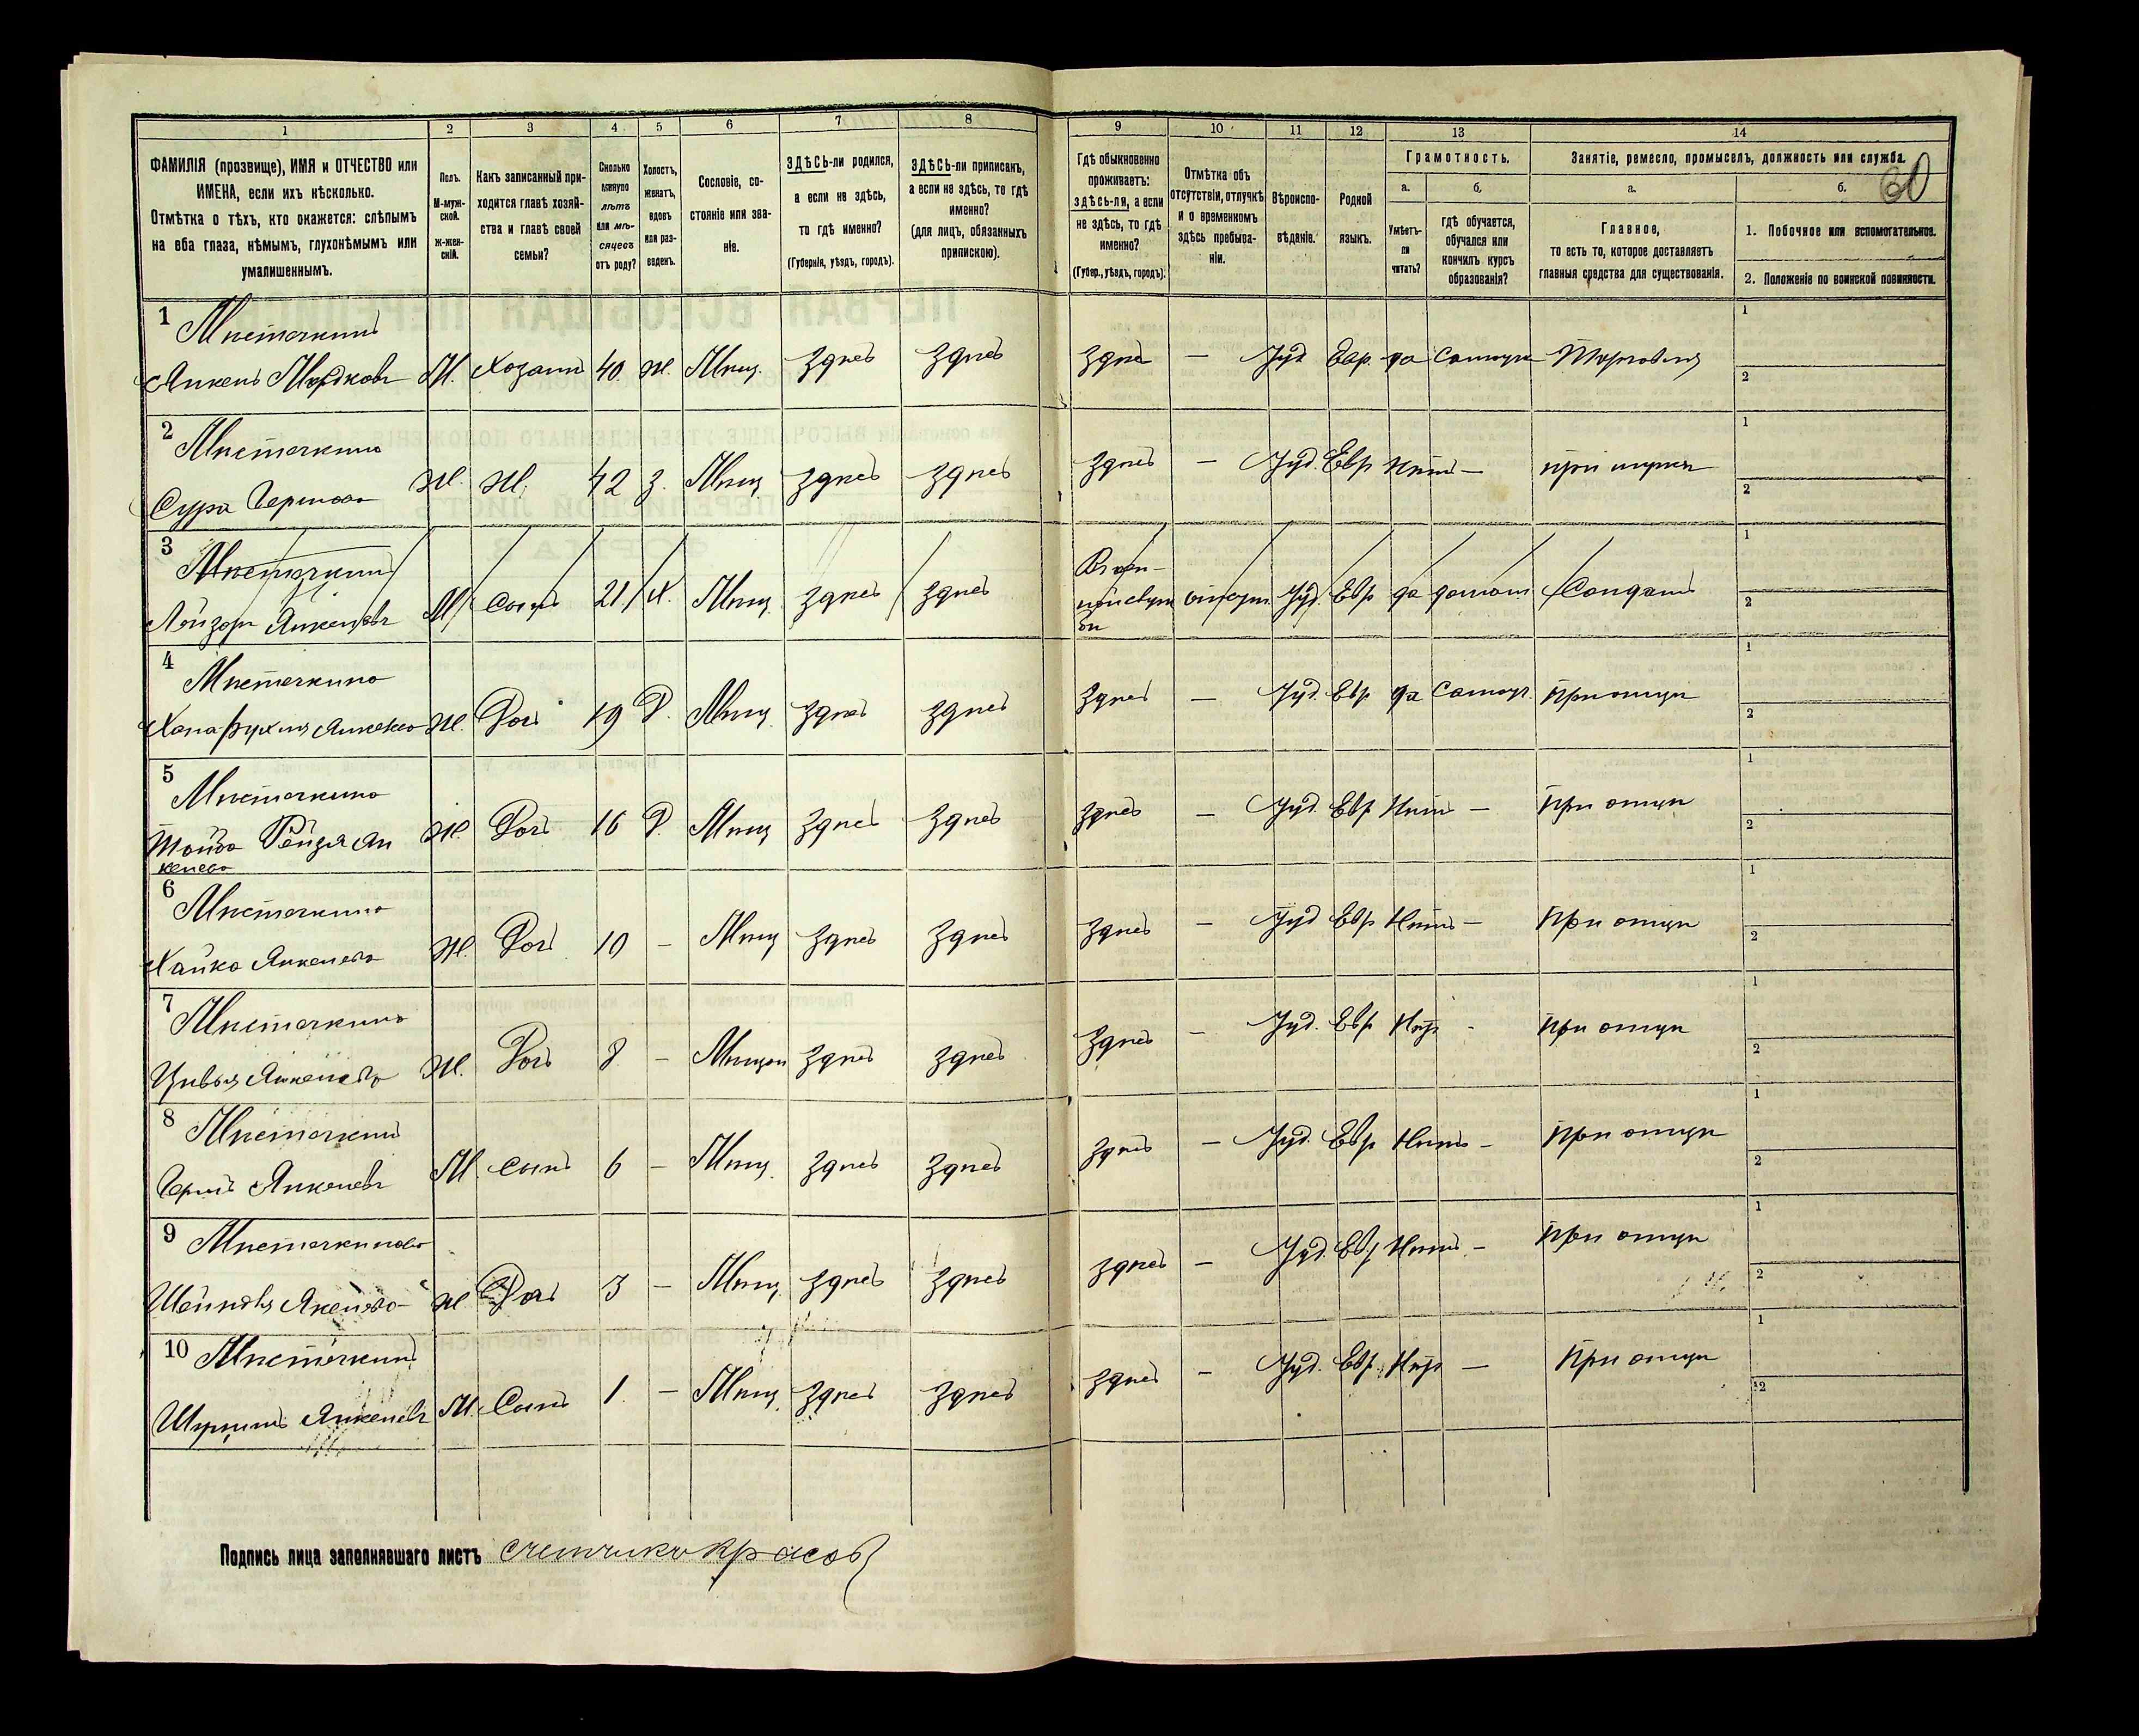 1
2
3
4
5
6
7
8
9
10
11
12
13
14
60
ФАМИЛІЯ (прозвище), ИМЯ и ОТЧЕСТВО или
ИМЕНА, если ихъ нѣсколько.
Отмѣтка о тѣхъ, кто окажется: слѣпымъ
на оба глаза, нѣмымъ, глухонѣмымъ или
умалишеннымъ.
Полъ.
М-муж-
ской.
Ж-жен-
скій.
Какъ записанный при-
ходится главѣ хозяй-
ства и главѣ своей
семьи?
Сколько
минуло
лѣтъ
или мѣ-
сяцевъ
отъ роду?
Холостъ,
женатъ,
вдовъ
или раз-
веденъ.
Сословіе, со-
стояніе или зва-
ніе.
ЗДѢСЬ-ли родился,
а если не здѣсь,
то гдѣ именно?
(Губернія, уѣздъ, городъ).
ЗДѢСЬ-ли приписанъ,
а если не здѣсь, то гдѣ
именно?
(для лицъ, обязанныхъ
припискою).
Гдѣ обыкновенно
проживаетъ:
здѣсь-ли, а если
не здѣсь, то гдѣ
именно?
(Губер., уѣздъ, городъ).
Отмѣтка объ
отсутствіи, отлучкѣ
и о временномъ
здѣсь пребыва-
ніи.
Вѣроиспо-
вѣданіе.
Родной
языкъ.
Грамотность.
а.
Умѣетъ-
ли
читать?
б.
гдѣ обучается,
обучался или
кончилъ курсъ
образованія?
Занятіе, ремесло, промыселъ, должность или служба.
а.
Главное,
то есть то, которое доставляетъ
главныя средства для существованія.
б.
1. Побочное или вспомогательное.
2. Положеніе по воинской повинности.
1 Мѣстечкинъ
Янкель Мордковъ М. Хозяинъ 40. Ж. Мѣщ. Здѣсь Здѣсь Здѣсь — Іуд Евр. да Самоуч Торговля 1 2
2 Мѣстечкина
Сура Гершова Ж. Ж. 42 З. Мѣщ. Здѣсь Здѣсь Здѣсь — Іуд. Евр Нѣтъ — при мужѣ 1 2
3 Мѣстечкинъ
Лейзеръ Янкелевъ М Сынъ 21. Х. Мѣщ Здѣсь Здѣсь Іуд. Евр да домаш Солдатъ 1 2
4 Мѣстечкина
Ж. Дочь 19 Д. Мѣщ. Здѣсь Здѣсь Здѣсь — Іуд. Евр да Самоуч. При отцѣ 1 2
5 Мѣстечкина
Тойба Рейзя Ян
келева
Ж. Дочь 16 Д. Мѣщ Здѣсь Здѣсь Здѣсь — Іуд. Евр Нѣтъ — При отцѣ 1 2
6 Мѣстечкина
Хайка Янкелева Ж. Дочь 10 — Мѣщ Здѣсь Здѣсь Здѣсь — Іуд Евр Нѣтъ — При отцѣ 1 2
7 Мѣстечкина
Цивья Янкелева Ж. Дочь 8 — Мѣщан Здѣсь Здѣсь Здѣсь — Іуд. Евр Нѣтъ - при отцѣ 1 2
8 Мѣстечкинъ
Гершъ Янкелевъ М. Сынъ 6 — Мѣщ. Здѣсь Здѣсь Здѣсь — Іуд. Евр Нѣтъ — При отцѣ 1 2
9
Ж Дочь 3 — Мѣщ. Здѣсь Здѣсь Здѣсь — Іуд. Евр Нѣтъ — При отцѣ 1 2
10 Мѣстечкинъ
Янкелевъ М. Сынъ 1. — Мѣщ. Здѣсь Здѣсь Здѣсь — Іуд. Евр. Нѣтъ — При отцѣ 1 2
Подпись лица заполнявшаго листъ